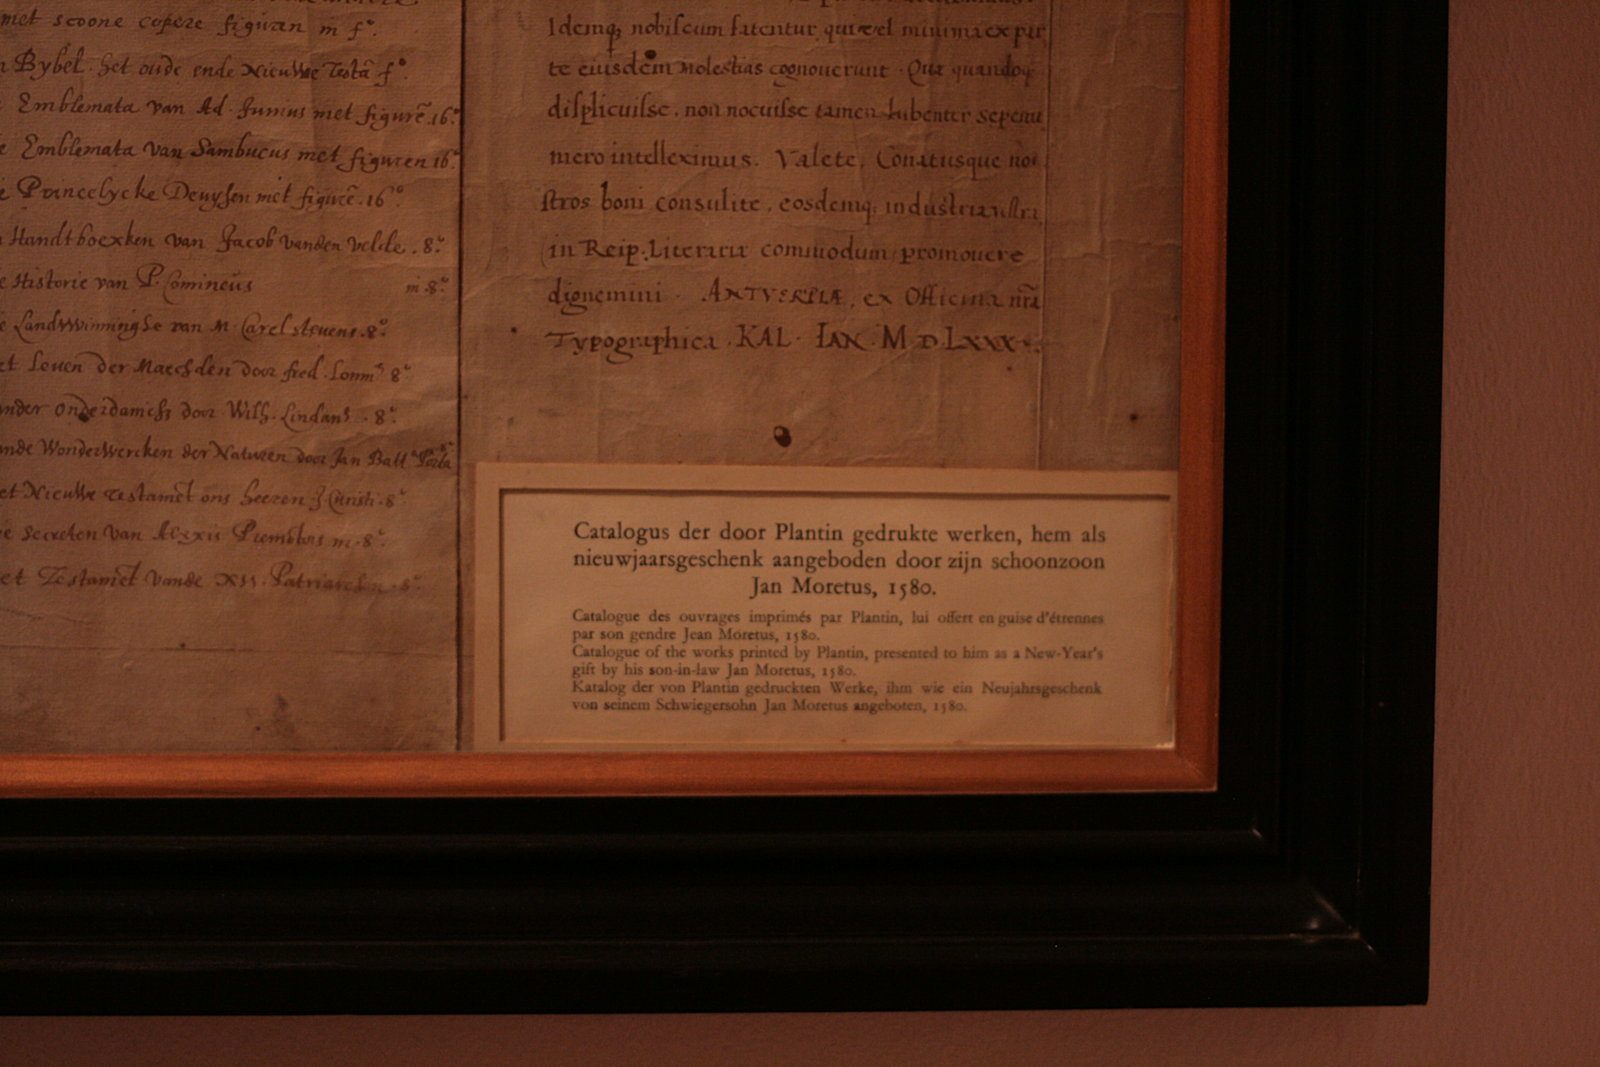 met scoone copere figuren in fº.
Bybel. het oude ende Nieuwe Testã fº
Emblemata van Ad. Junius met figurẽ .16.º
Emblemata van Sambucus met figuren 16.º
Princelycke Deuysen met figurẽ .16º
Handtboexken van Jacob vanden velde .8.º
Historie van P. Comineus in 8.º
Landtwinninghe van M. Carel stevens .8.º
Leven der Maechden door fred.
door Wilh. Lindans . 8.º
Wonderwercken der Natueren door Jan Batt
Nieuwe Testamẽt ons heeren
secreten van Alexis Piemontois in .8.º
Testamẽt vande XII. Patriarchen .8.º
Idemq; nobiscum fatentur qui vel minima ex par
te eiusdem molestias cognouerunt. Quæ quandoq;
displicuisse, non nocuisse tamen lubenter sepenu
mero intelleximus. Valete, Conatusque no
stros boni consulite, eosdemq; industria
in Reip. Literariæ commodum promouere
dignemini. ANTVERPIÆ, ex Officina nr̃a
Typographica .KAL. IAN. M D LXXX.
Catalogus der door Plantin gedrukte werken, hem als
nieuwjaarsgeschenk aangeboden door zijn schoonzoon
Jan Moretus, 1580.
Catalogue des ouvrages imprimés par Plantin, lui offert en guise d'étrennes
par son gendre Jean Moretus, 1580.
Catalogue of the works printed by Plantin, presented to him as a New-Year's
gift by his son-in-law Jan Moretus, 1580.
Katalog der von Plantin gedruckten Werke, ihm wie ein Neujahrsgeschenk
von seinem Schwiegersohn Jan Moretus angeboten, 1580.